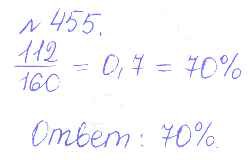 № 455.
112/160 = 0,7 = 70%
Ответ: 70%.